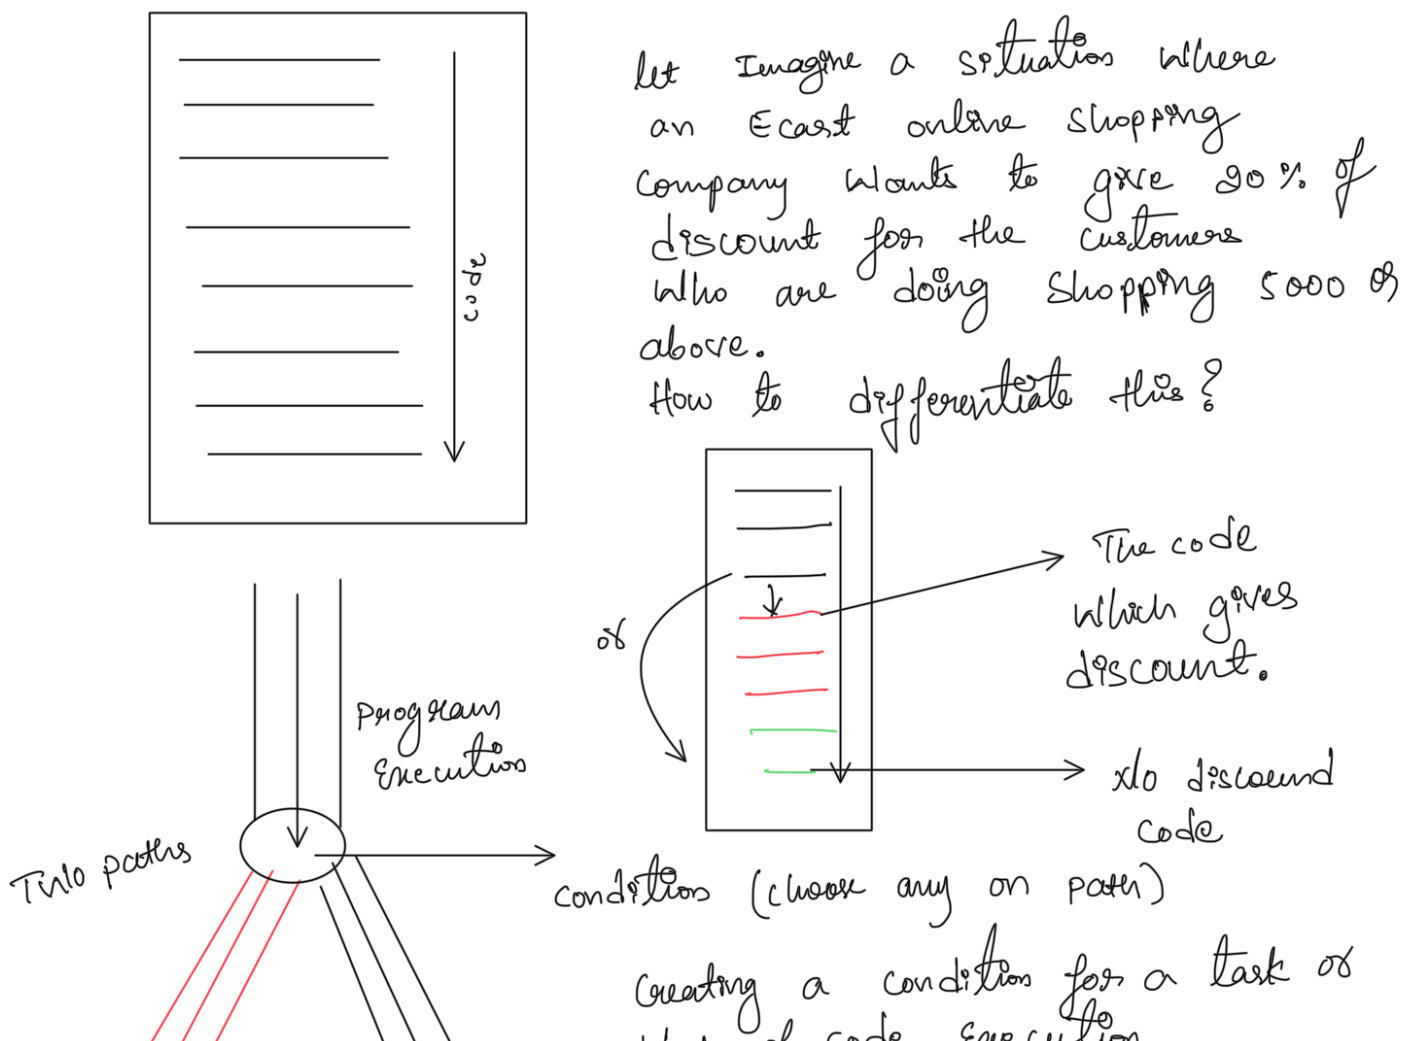 let Imagine a situation where
an Ecart online shopping
company wants to give 20% of
discount for the customers
who are doing shopping 5000 or
above.
How to differentiate this?
code
The code
which gives
discount.
or
program
Execution
w/o discound
code
Two paths
condition (choose any on path)
Creating a condition for a task or
code Execution